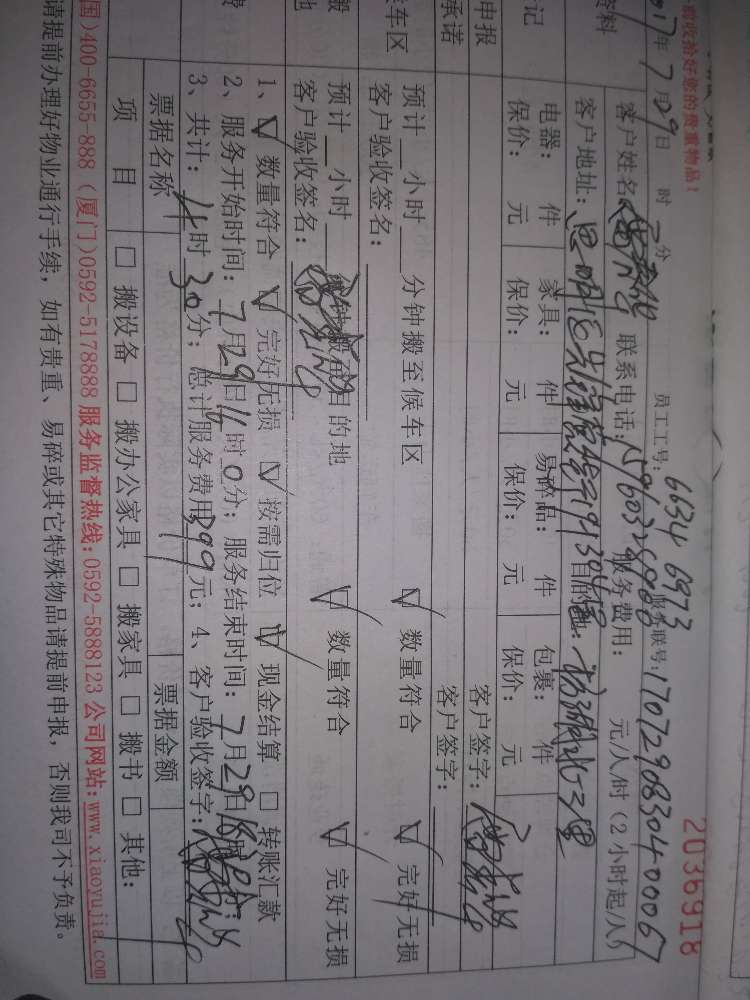 前收拾好您的贵重物品！
2036918
017年7月29日 时 分
员工工号：6634 6973
服务联号：17072908304000067
资料
客户姓名
联系电话：
服务费用： 元/人/时（2小时起/人
客户地址：思明区
目的地：
记
电器： 件 家具： 件 易碎品： 件 包裹： 件
保价： 元 保价： 元 保价： 元 保价： 元
申报
承诺
客户签字：
客户签字：
车区
预计 小时 分钟搬至候车区
数量符合 完好无损
客户验收签名：
搬
地
预计 小时 目的地
数量符合 完好无损
客户验收签名：
费
1、 数量符合 完好无损 按需归位 现金结算 转账汇款
2、服务开始时间：7月29日16时0分；服务结束时间：7月29日
3、共计：4时30分；总计服务费用399元；4、客户验收签字：
票据名称 票据金额
项 目 □ 搬设备 □ 搬办公家具 □ 搬家具 □ 搬书 □ 其他：
国)400-6655-888（厦门)0592-5178888 服务监督热线:0592-5888123 公司网站:www.xiaoyujia.com
请提前办理好物业通行手续，如有贵重、易碎或其它特殊物品请提前申报，否则我司不予负责。